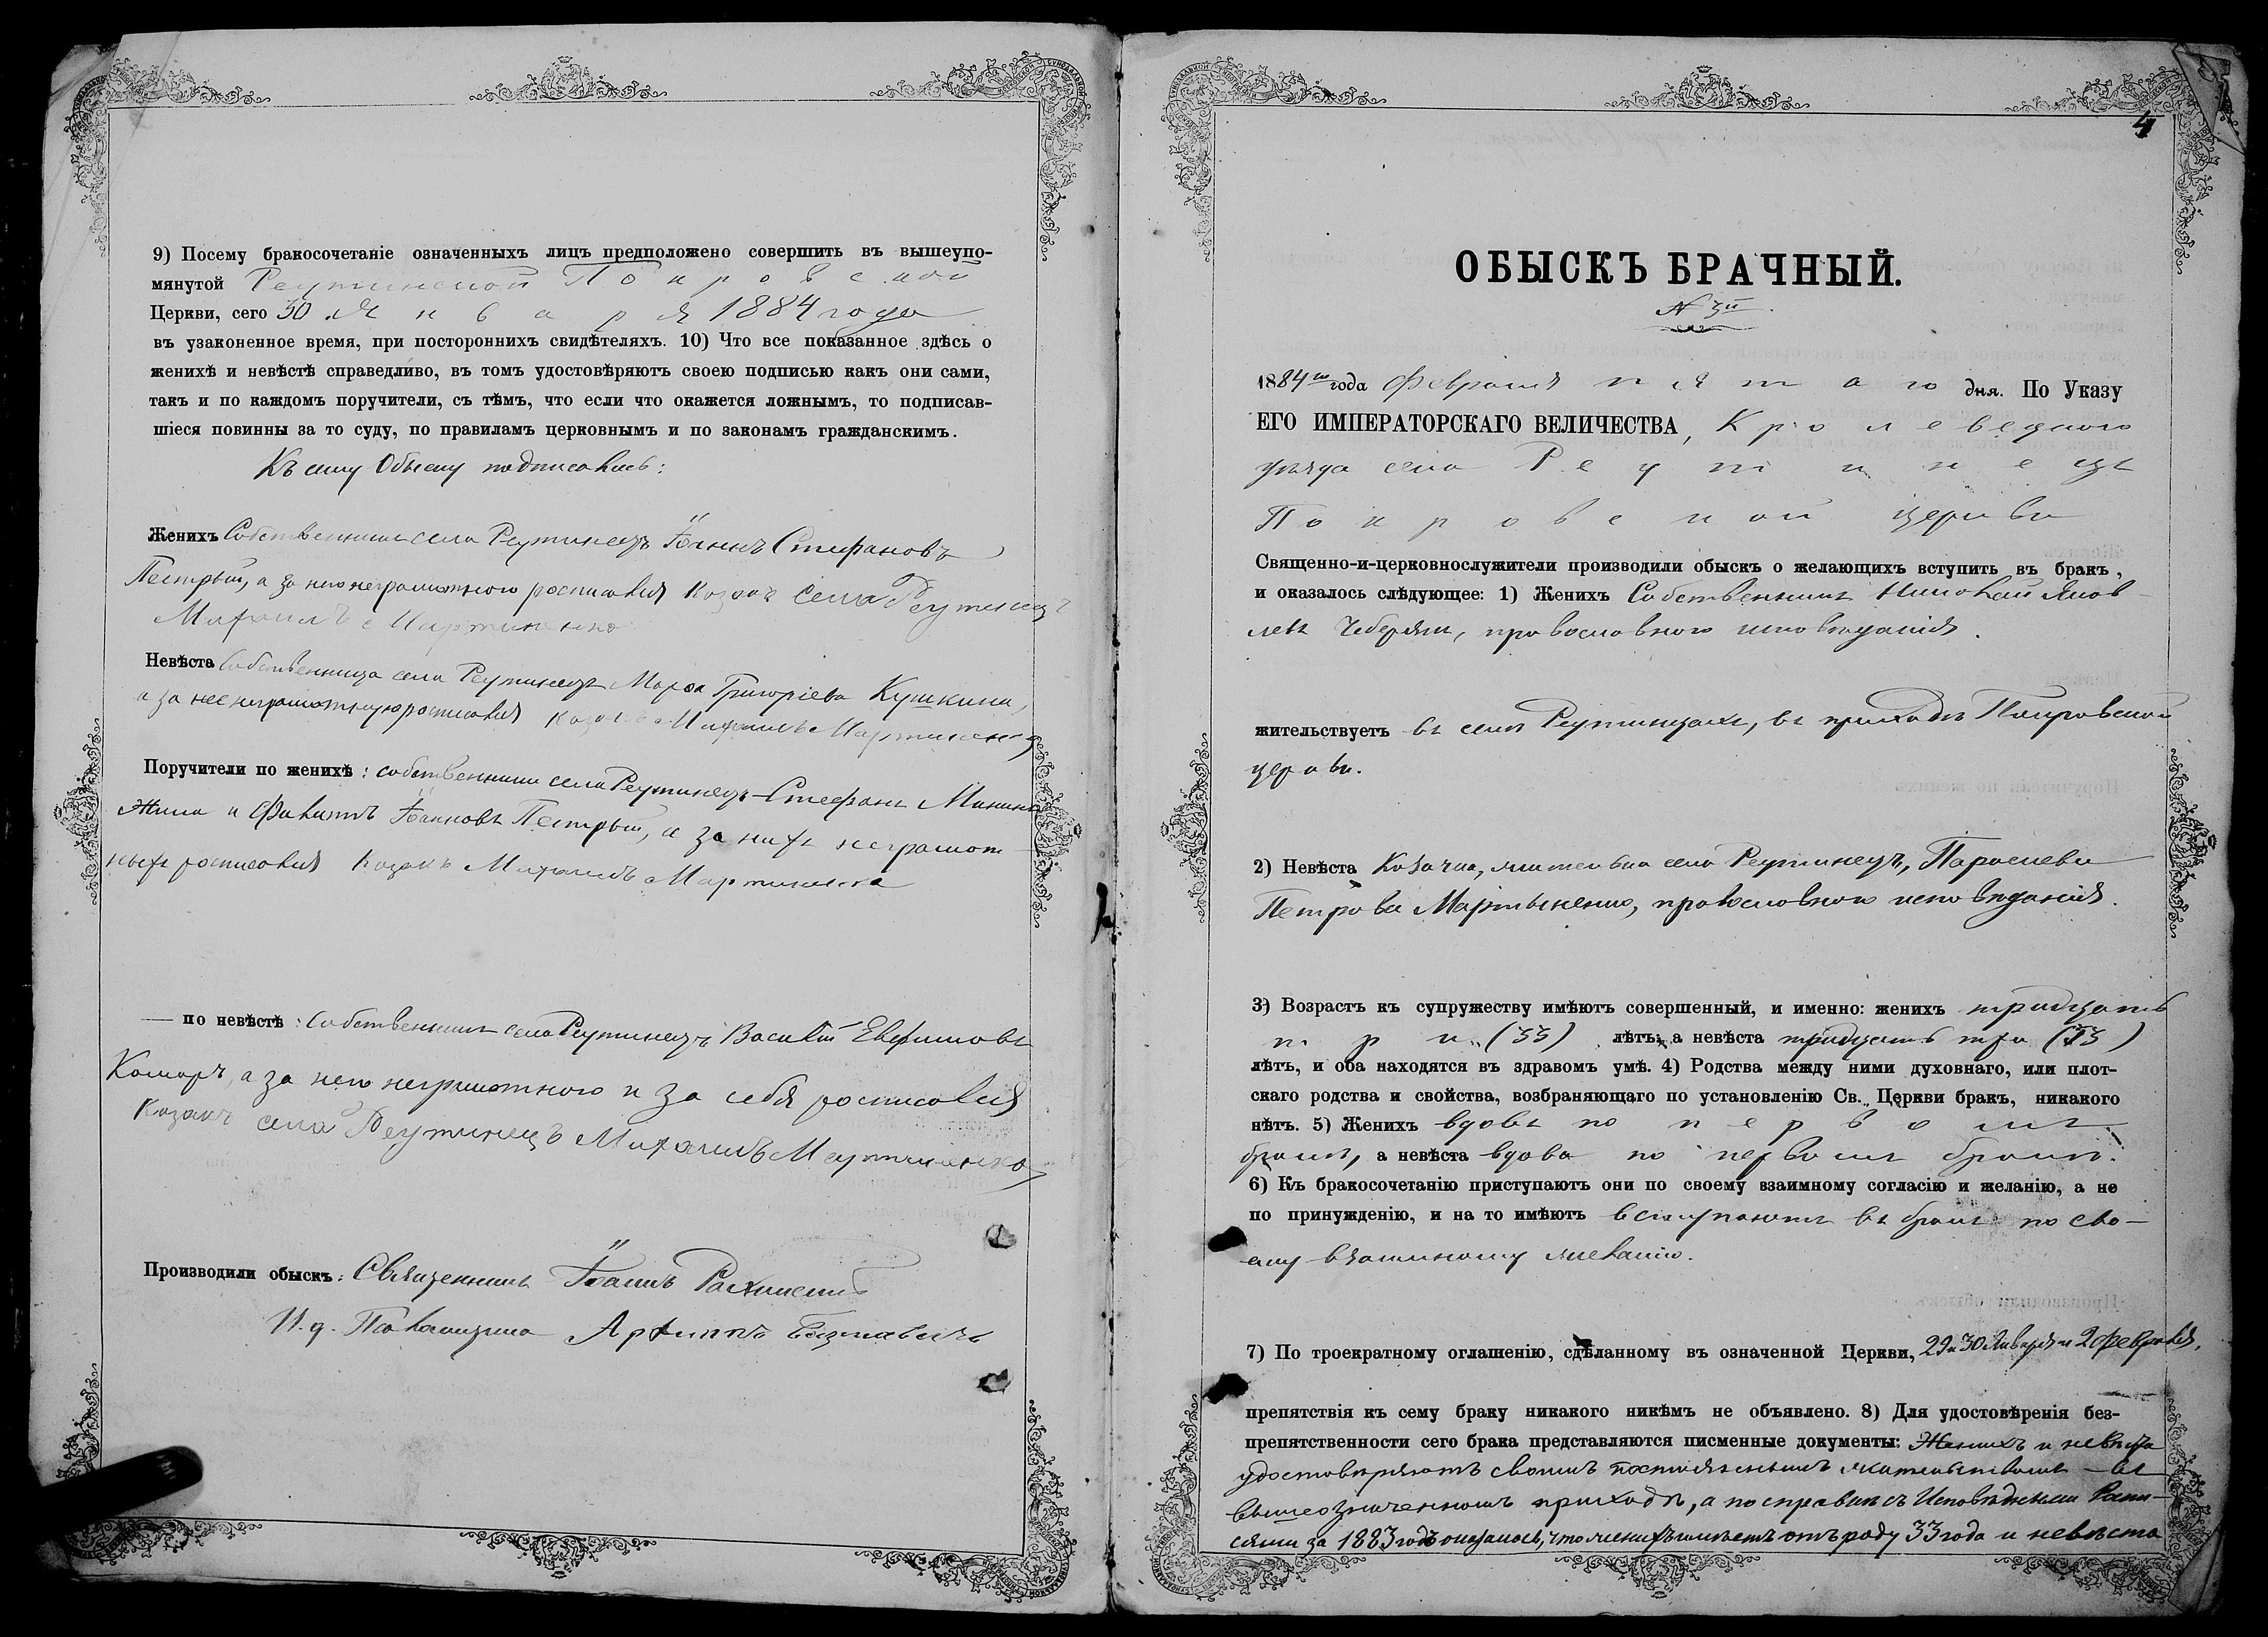 9) Посему бракосочетаніе означенныхъ лицъ предположено совершить въ вышеупо-
мянутой Реутинской Покровской
Церкви, сего 30 Января 1884 года
въ узаконенное время, при постороннихъ свидѣтеляхъ. 10) Что все показанное здѣсь о
женихѣ и невѣстѣ справедливо, въ томъ удостовѣряютъ своею подписью какъ они сами,
такъ и по каждомъ поручители, съ тѣмъ, что если что окажется ложнымъ, то подписав-
шіеся повинны за то суду, по правиламъ церковнымъ и по законамъ гражданскимъ.
Къ сему Обыску подписались:
Женихъ Собственникъ села Реутинецъ Іоаннъ Стефановъ
Пестрый, а за него неграмотного росписался Козакъ села Реутинецъ
Михаилъ Мартиненко
Невѣста Собственница села Реутинецъ Марѳа Григоріева Кушкина,
а за нее неграмотную росписался козакъ Михаилъ Мартиненко
Поручители по женихѣ: собственники села Реутинецъ Стефанъ Мининъ
Жила и Филиппъ Іоанновъ Пестрый, а за нихъ неграмот-
ныхъ росписался Козакъ Михаилъ Мартиненко
— по невѣстѣ: Собственникъ села Реутинецъ Василій Евфимовъ
Комаръ, а за него неграмотного и за себя росписался
Козакъ села Реутинецъ Михаилъ Мартиненко
Производили обыскъ: Священникъ Іоаннъ
И. д. Псаломщика Архиппъ
4
ОБЫСКЪ БРАЧНЫЙ.
№ 3й
1884го года Февраля пятаго дня. По Указу
ЕГО ИМПЕРАТОРСКАГО ВЕЛИЧЕСТВА, Кролевецкого
уѣзда села Реутинецъ
Покровской церкви
Священно-и-церковнослужители производили обыскъ о желающихъ вступить въ бракъ,
и оказалось слѣдующее: 1) Женихъ Собственникъ Николай Яков-
левъ Чеберяк, православного исповѣданія.
жительствуетъ въ селѣ Реутинцахъ, въ приходѣ Покровской
церкви.
2) Невѣста Козачка, жителька села Реутинецъ, Параскева
Петрова Мартыненко, православного исповѣданія.
3) Возрастъ къ супружеству имѣютъ совершенный, и именно: женихъ тридцать
три (33) лѣтъ, а невѣста тридцать три (33)
лѣтъ, и оба находятся въ здравомъ умѣ. 4) Родства между ними духовнаго, или плот-
скаго родства и свойства, возбраняющаго по установленію Св. Церкви бракъ, никакого
нѣтъ. 5) Женихъ вдовъ по первомъ
бракѣ, а невѣста вдова по первомъ бракѣ.
6) Къ бракосочетанію приступаютъ они по своему взаимному согласію и желанію, а не
по принужденію, и на то имѣютъ вступаютъ въ бракъ по сво-
ему взаимному желанію.
7) По троекратному оглашенію, сдѣланному въ означенной Церкви, 29 и 30 Января и 2 февраля,
препятствія къ сему браку никакого никѣмъ не объявлено. 8) Для удостовѣренія без-
препятственности сего брака представляются писменные документы: Женихъ и невѣста
удостовѣряютъ своимъ постояннымъ жительствомъ въ
вышеозначенномъ приходѣ, а по справкѣ съ Исповѣдными Роспи-
сями за 1883 годъ оказалось, что женихъ имѣетъ отъ роду 33 года и невѣста